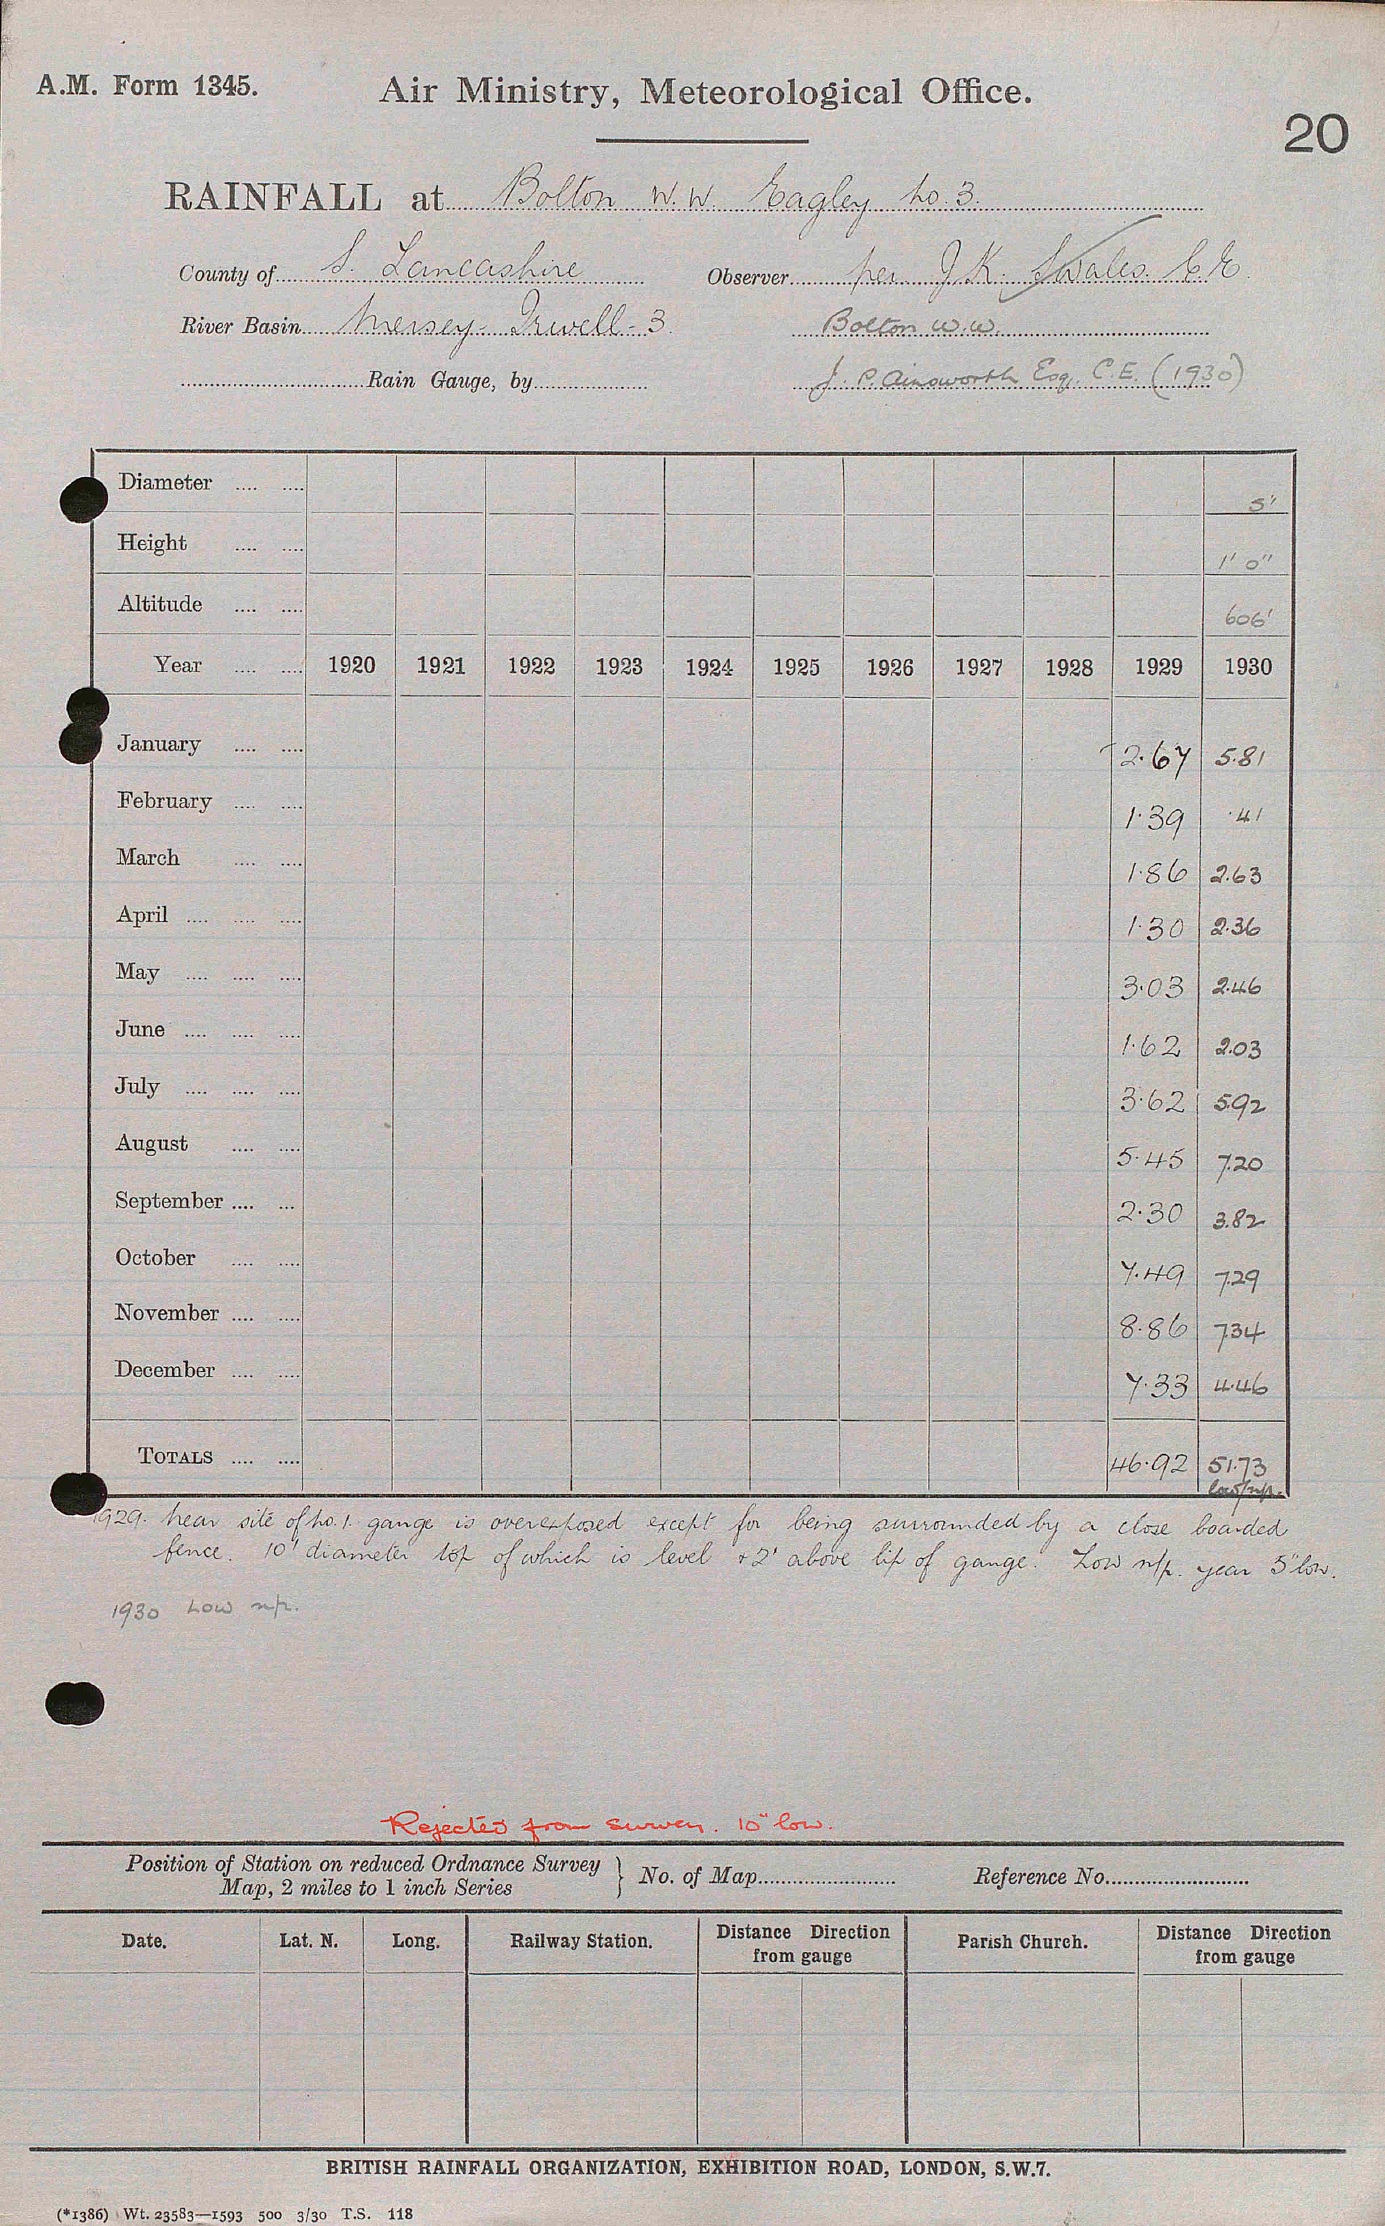 A.M. Form 1345.
Air Ministry, Meteorological Office.
20
RAINFALL at Bolton W.W. Eagley No. 3.
County of S. Lancashire Observer per J.K. Swales. C.E.
River Basin Mersey - Irwell - 3 Bolton W.W.
Rain Gauge, by J. P. Ainsworth Esq. C.E. (1930)
Diameter 5"
Height 1' 0"
Altitude 606'
Year 1920 1921 1922 1923 1924 1925 1926 1927 1928 1929 1930
January 2.67 5.81
February 1.39 .41
March 1.86 2.63
April 1.30 2.36
May 3.03 2.46
June 1.62 2.03
July 3.62 5.92
August 5.45 7.20
September 2.30 3.82
October 7.49 7.29
November 8.86 7.34
December 7.33 4.46
TOTALS 46.92 51.73
low n/p.
1929. Near site of No. 1. gauge is overexposed except for being surrounded by a close boarded
fence. 10' diameter top of which is level + 2' above lip of gauge. Low n/p. year 5" low.
1930 Low n/p.
Rejected from survey. 10" low.
Position of Station on reduced Ordnance Survey
Map, 2 miles to 1 inch Series } No. of Map Reference No.
Date. Lat. N. Long. Railway Station. Distance Direction from gauge Parish Church. Distance Direction from gauge
BRITISH RAINFALL ORGANIZATION, EXHIBITION ROAD, LONDON, S.W.7.
(*1386) Wt. 23583—1593 500 3/30 T.S. 118